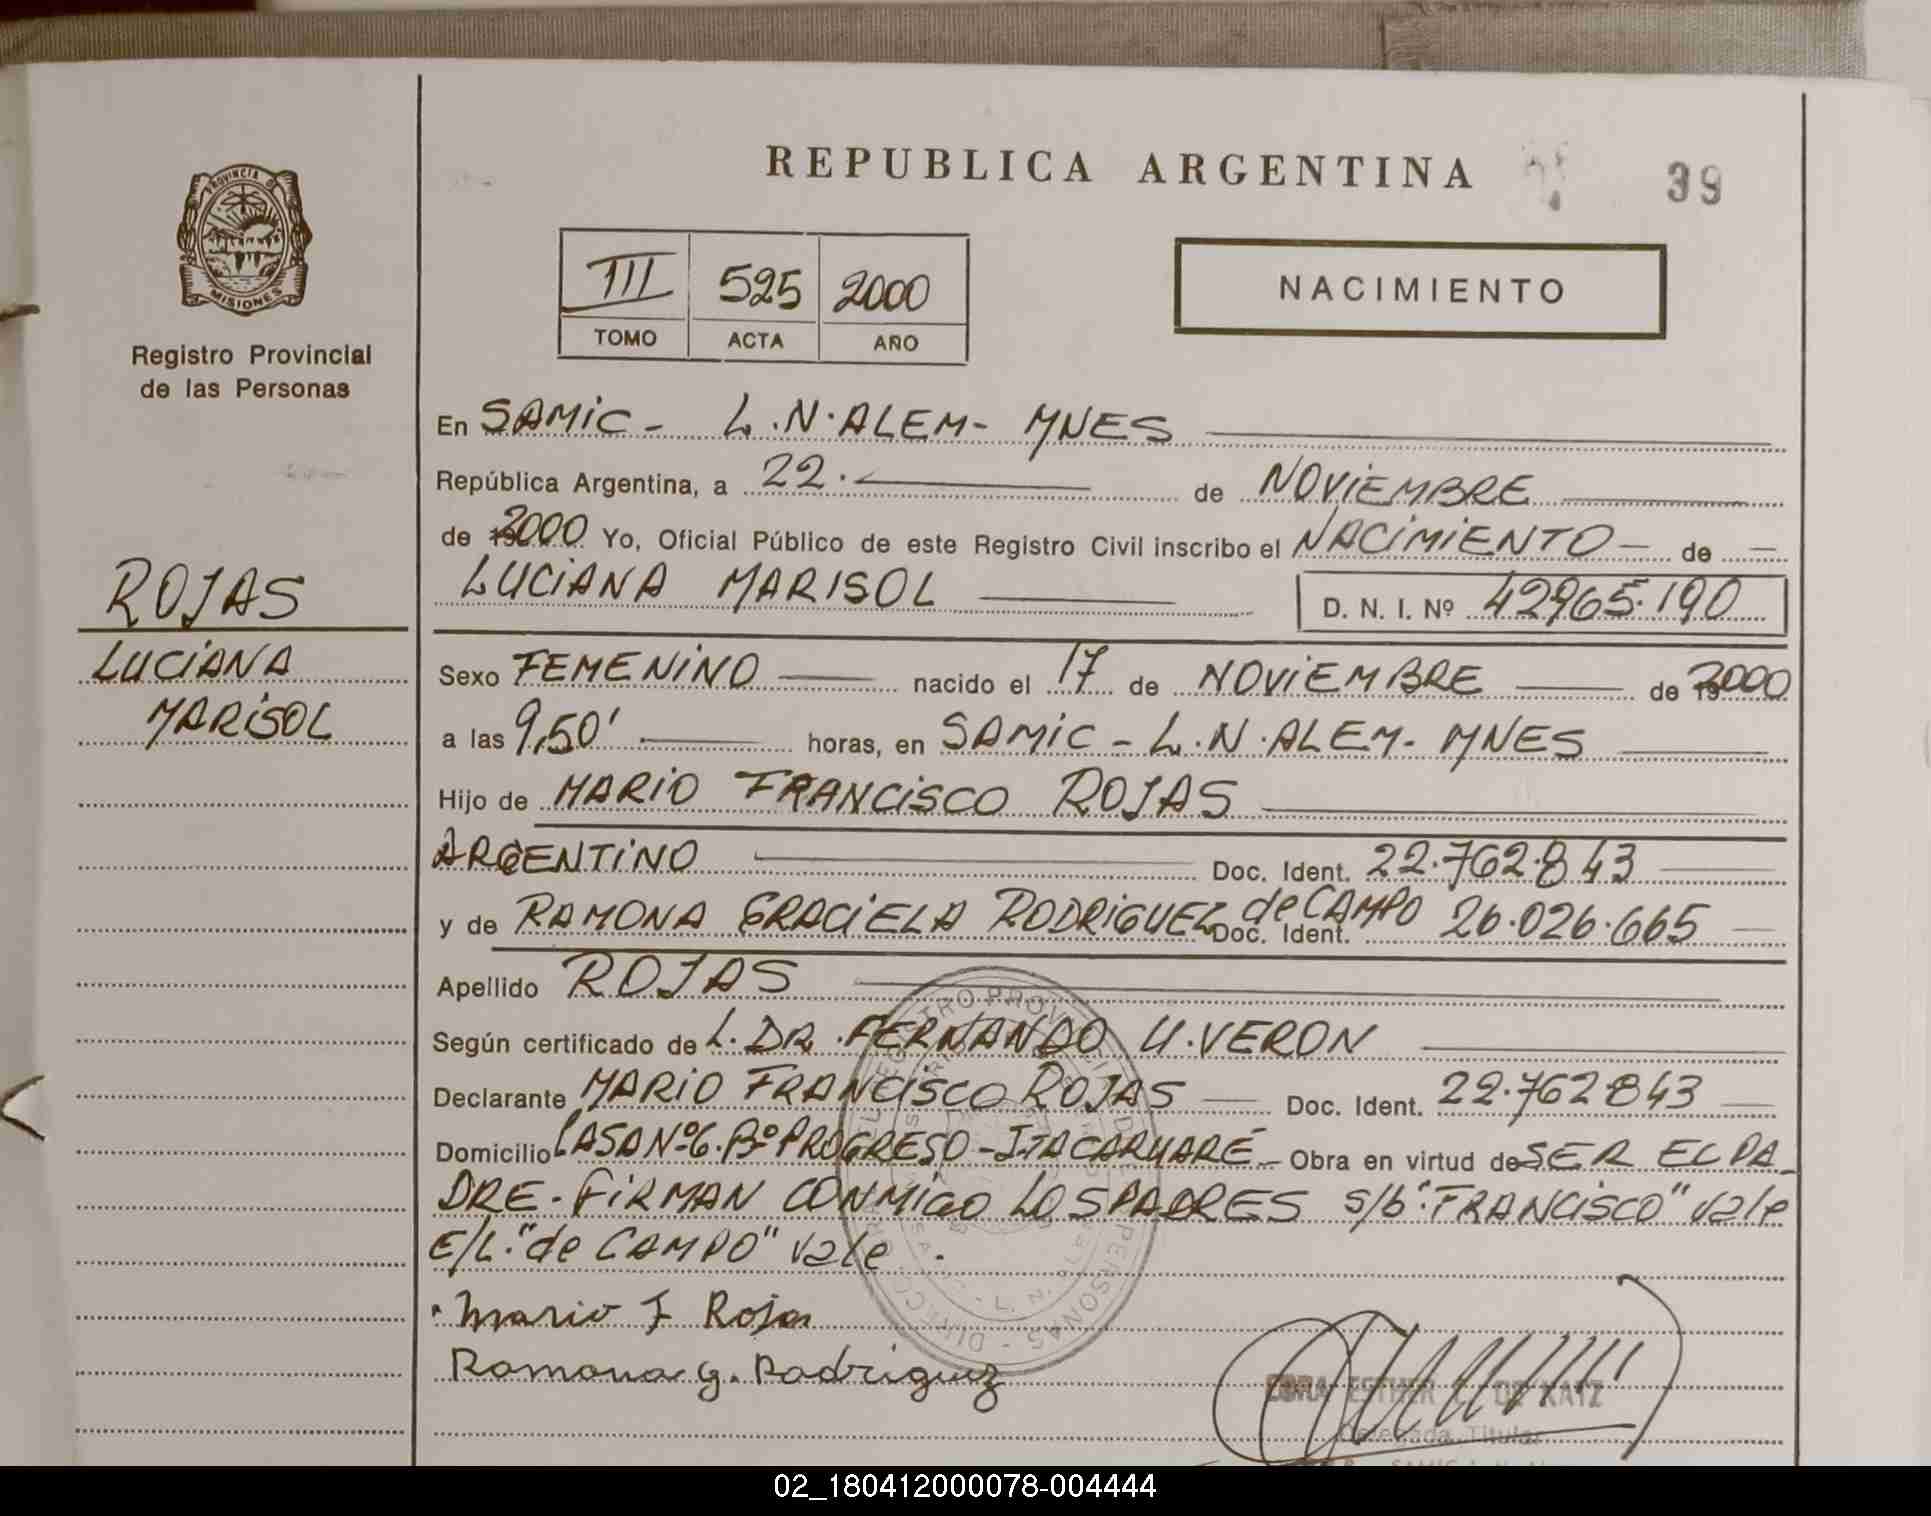 REPUBLICA ARGENTINA
39
PROVINCIA DE
MISIONES
Registro Provincial
de las Personas
III 525 2000
TOMO ACTA AÑO
NACIMIENTO
En SAMIC - L.N. ALEM - MNES
República Argentina, a 22. de NOVIEMBRE
de 2000 Yo, Oficial Público de este Registro Civil inscribo el NACIMIENTO - de -
LUCIANA MARISOL D. N. I. Nº 42965.190
ROJAS
LUCIANA
MARISOL
Sexo FEMENINO nacido el 17 de NOVIEMBRE de 2000
a las 9,50' horas, en SAMIC - L.N. ALEM - MNES
Hijo de MARIO FRANCISCO ROJAS
ARGENTINO Doc. Ident. 22.762.843
y de RAMONA GRACIELA RODRIGUEZ de CAMPO Doc. Ident. 26.026.665
Apellido ROJAS
Según certificado de L. DR. FERNANDO U. VERON
Declarante MARIO FRANCISCO ROJAS Doc. Ident. 22.762843
Domicilio CASA Nº 6. Bº PROGRESO - ITACARUARÉ - Obra en virtud de SER EL PA-
DRE - FIRMAN CONMIGO LOS PADRES s/b: "FRANCISCO" vale
E/L: "de CAMPO" vale.
Mario F Rojas
Ramona g. Rodriguez
ESTHER DE KATZ
Delegada Titular
02_180412000078-004444